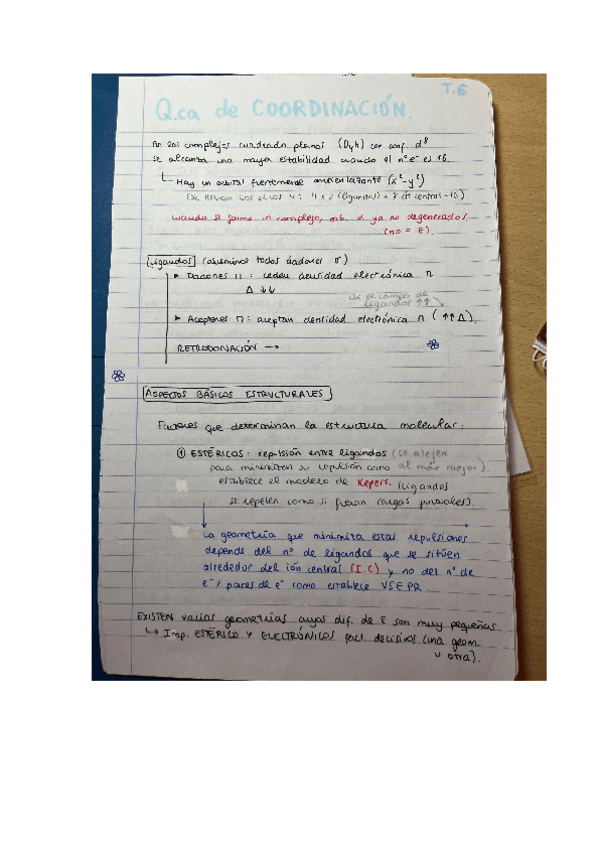 T.6
Q.ca de COORDINACIÓN.
En los complejos cuadrado planos (D4h) con conf. d8
se alcanza una mayor estabilidad cuando el nº e- es 16.
Hay un orbital fuertemente antienlazante (x²-y²)
4 x 2 (ligandos) + 8 át central = 16)
cuando se forma un complejo, orb. d ya no degenerados,
(no = E).
Ligandos (asumimos todos dadores σ)
▸ Dadores π: ceden densidad electrónica π
Δ ↓↓
de campo de
ligandos ↑↑
▸ Aceptores π: aceptan densidad electrónica π (↑↑ Δ).
RETRODONACIÓN →
ASPECTOS BÁSICOS ESTRUCTURALES
Factores que determinan la estructura molecular:
① ESTÉRICOS: repulsión entre ligandos (se alejen
para minimizar su repulsión como al máx mejor).
establece el modelo de Kepert. (ligandos
se repelen como si fueran cargas puntuales).
La geometría que minimiza estas repulsiones
depende del nº de ligandos que se sitúen
alrededor del ión central (I.C) y no del nº de
e-/pares de e- como establece VSEPR.
EXISTEN varias geometrías cuyas dif. de E son muy pequeñas.
↳ Imp. ESTÉRICO Y ELECTRÓNICOS fact. decisivos (una geom.
u otra).